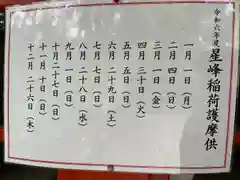 令和六年度
星峰稲荷護摩供
一月一日（月）
二月四日（日）
三月一日（金）
四月三十日（火）
五月五日（日）
六月二十九日（土）
七月七日（日）
八月二十八日（水）
九月一日（日）
十月二十七日（日）
十一月十日（日）
十二月二十六日（木）